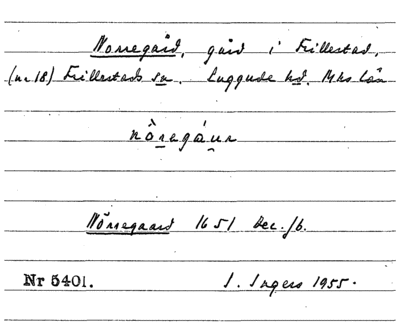 Norregård, gård i Frillestad,
(nr 18) Frillestads sn. Luggude hd. Mhs län
nòregáun
Nörregaard 1651 Dec.jb.
Nr 5401. I. Ingers 1955.